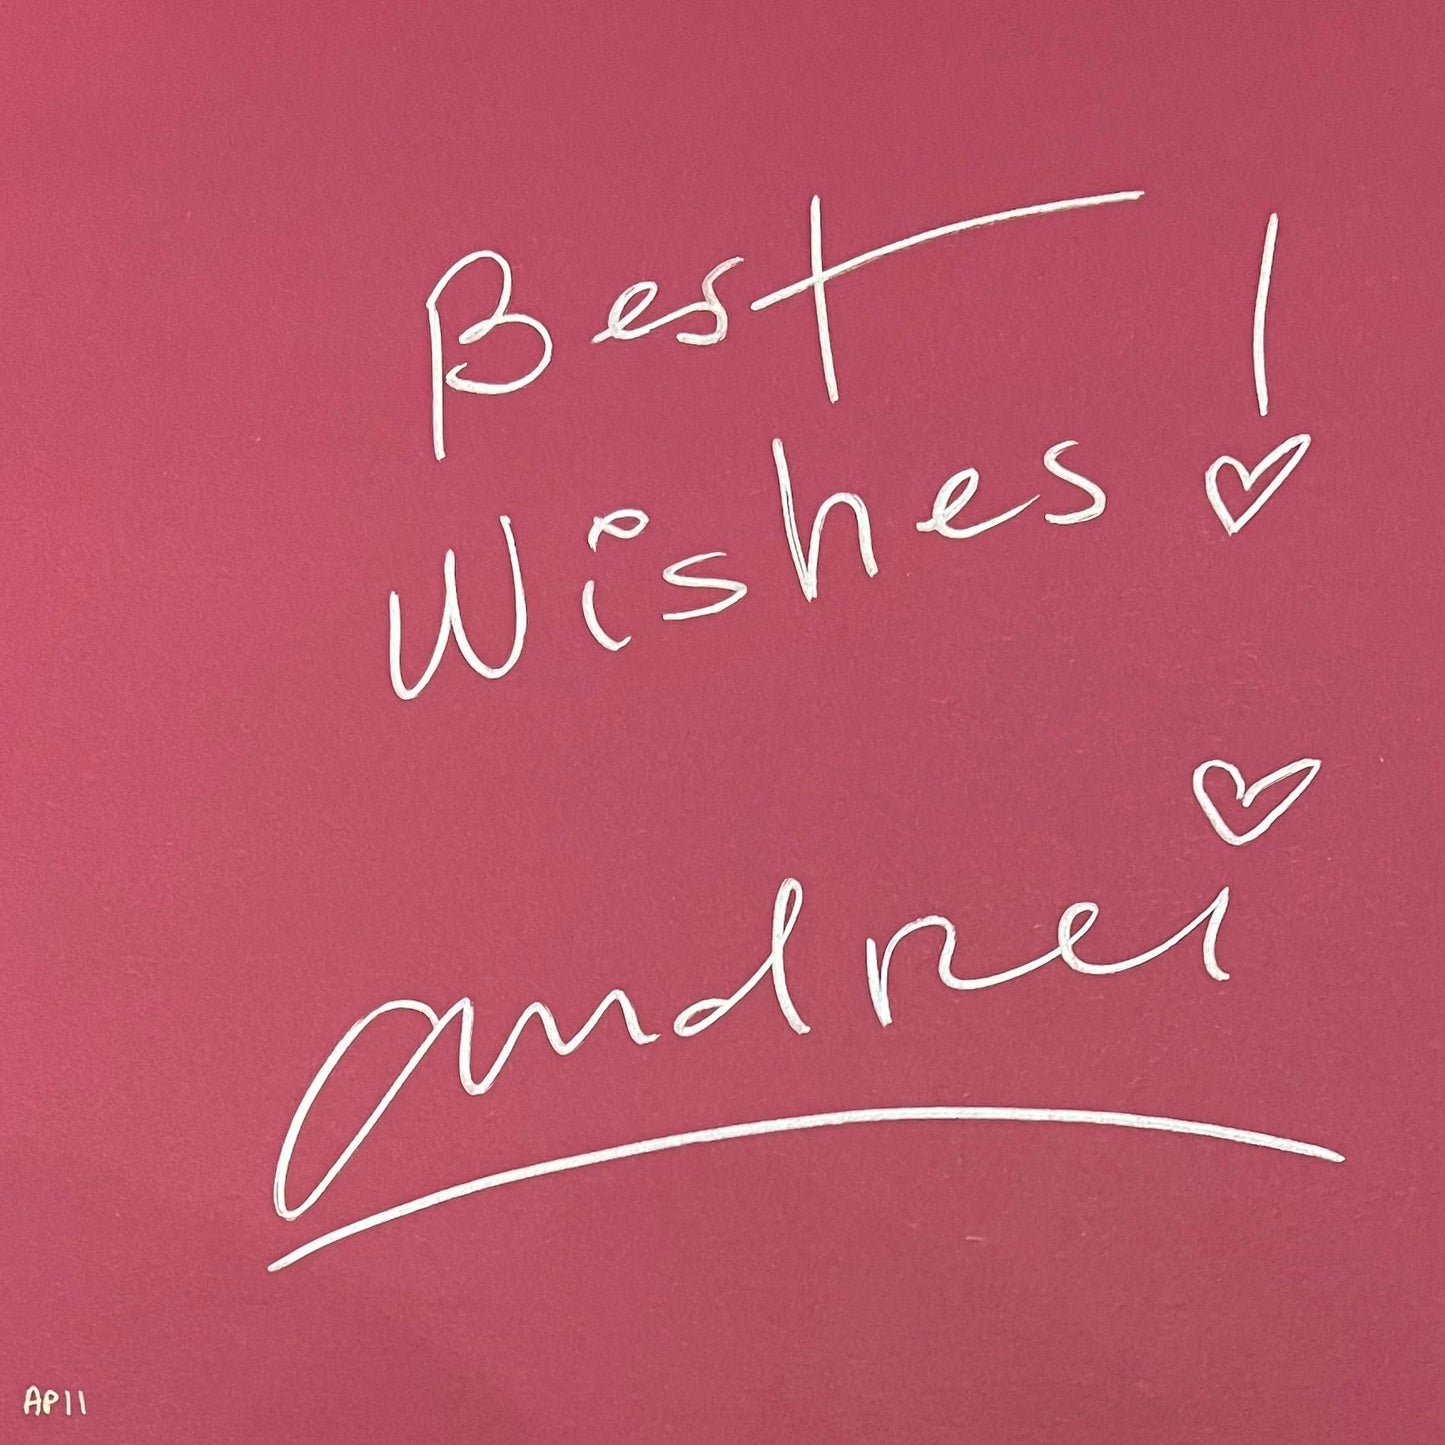 Best
Wishes!
andrei
AP11